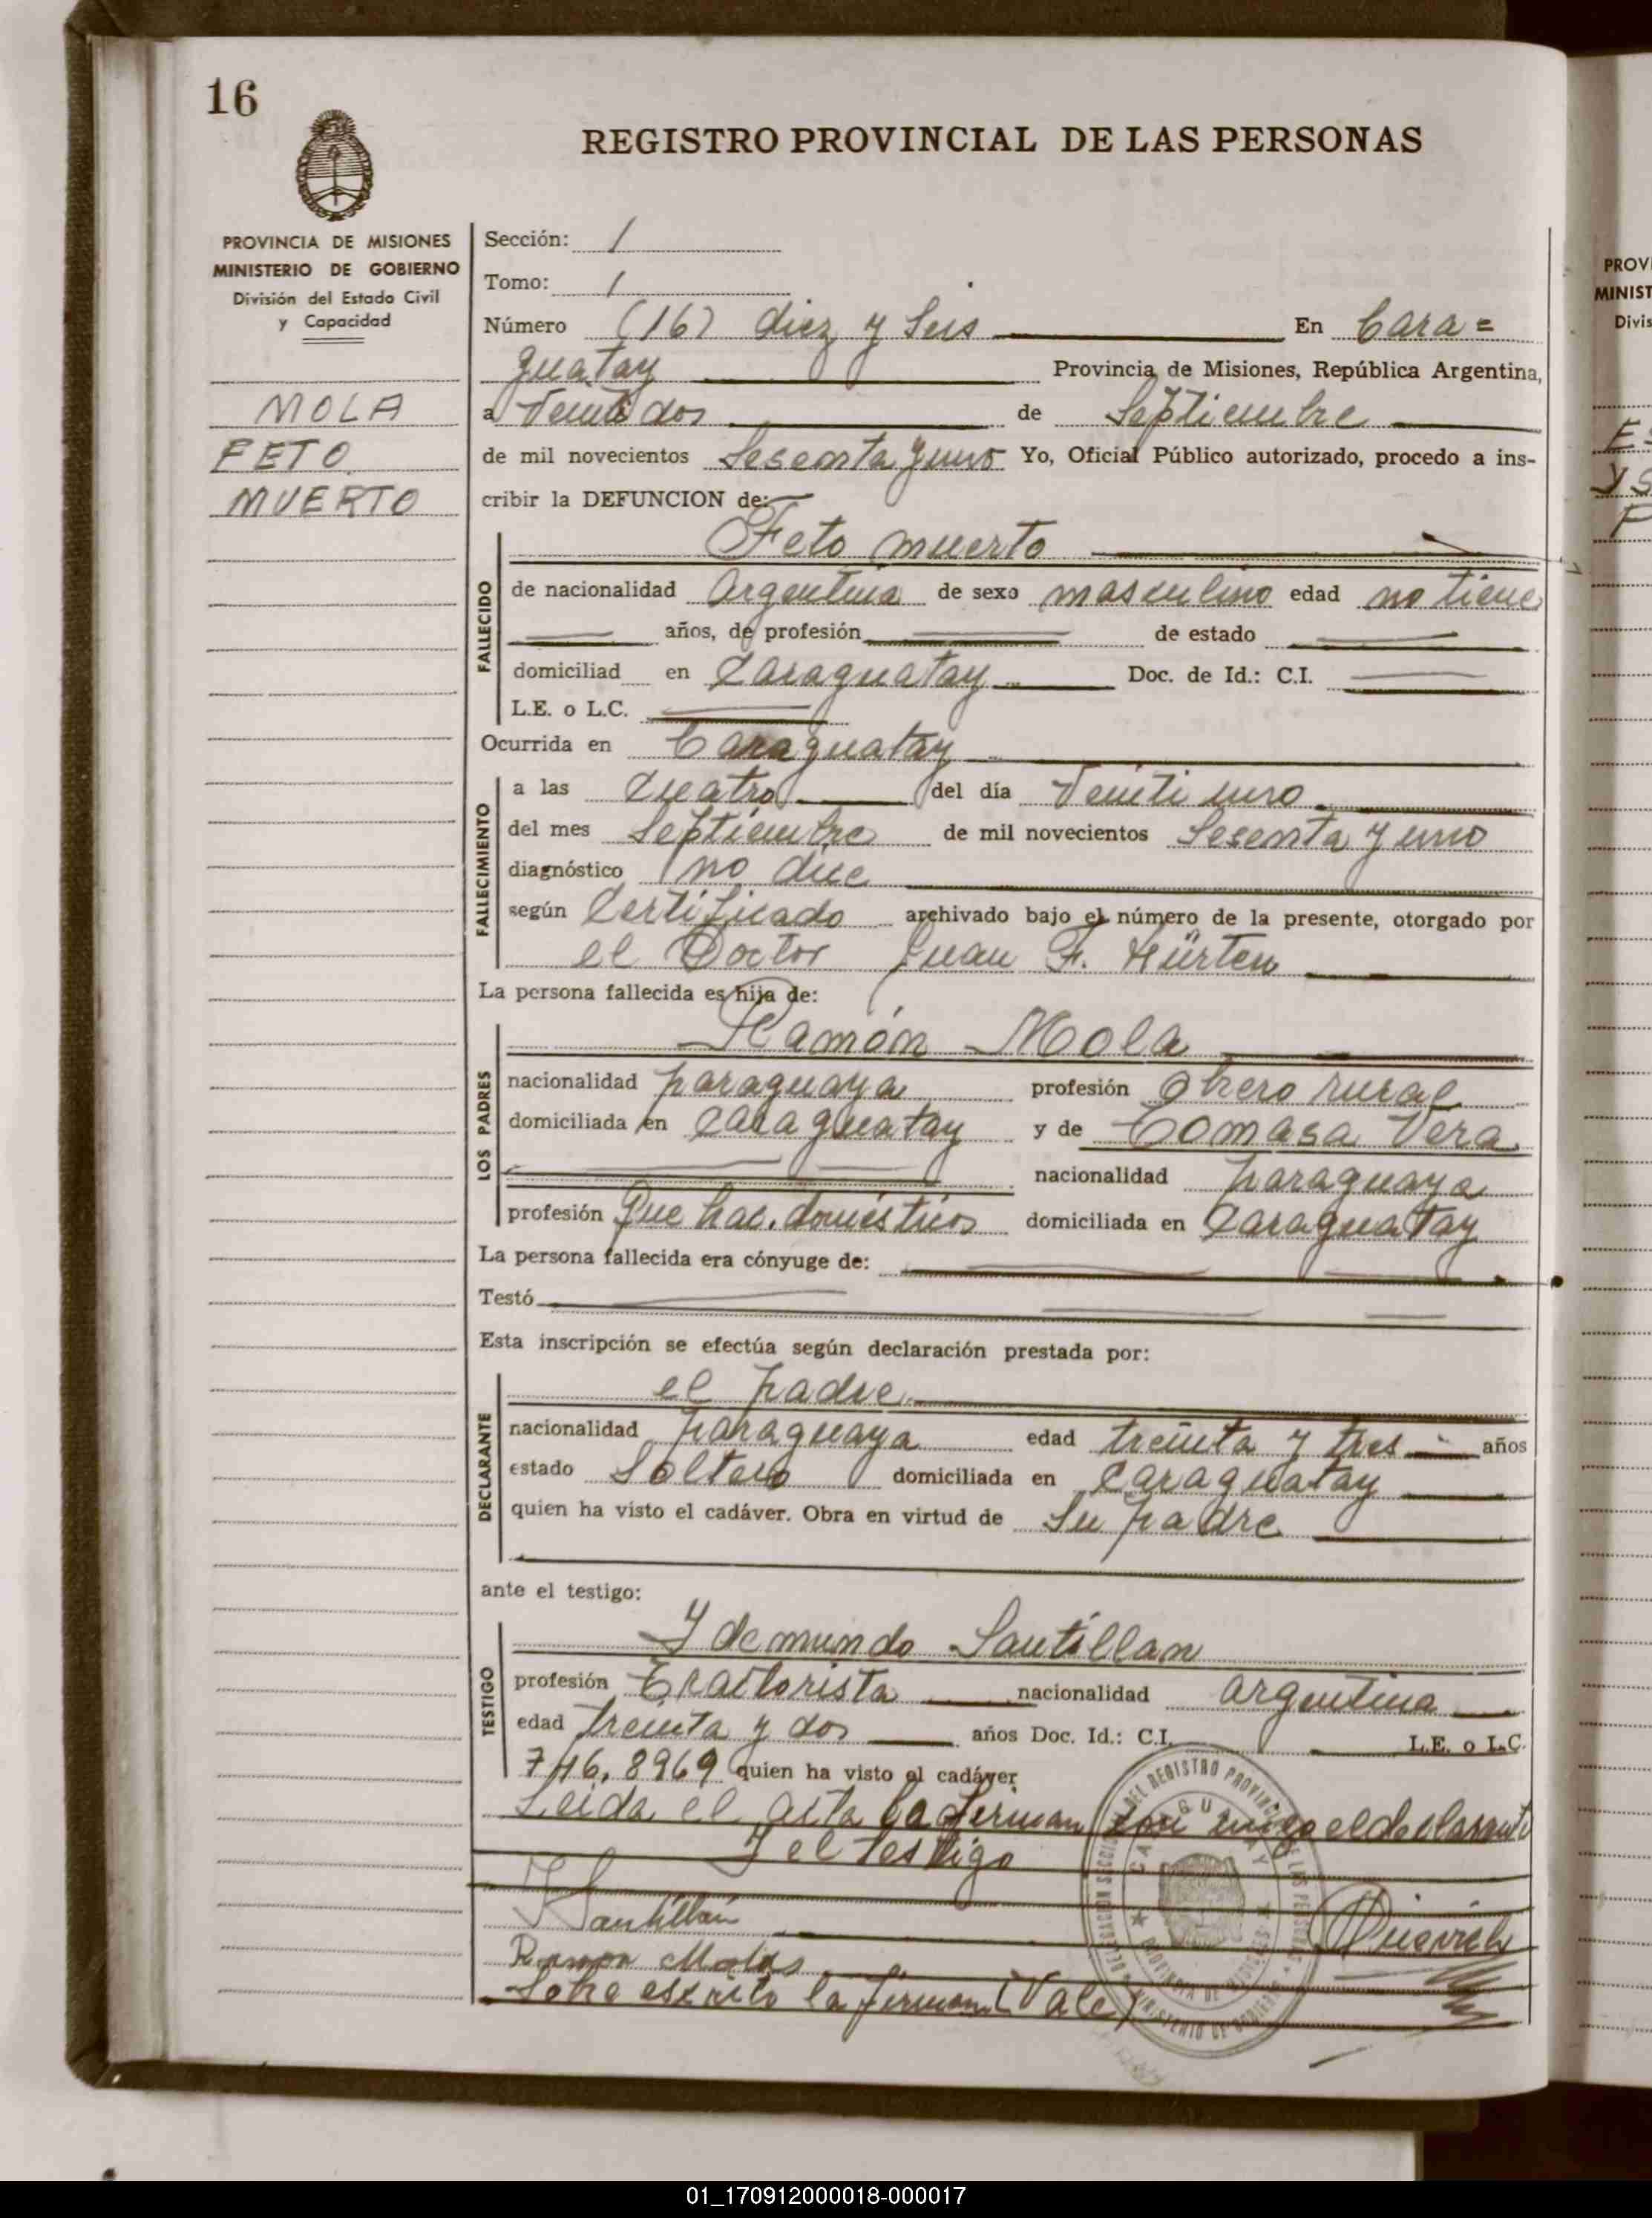 16
REGISTRO PROVINCIAL DE LAS PERSONAS
PROVINCIA DE MISIONES
MINISTERIO DE GOBIERNO
División del Estado Civil
y Capacidad
MOLA
FETO
MUERTO
Sección: 1
Tomo: 1
Número (16) diez y Seis En Cara=
guatay Provincia de Misiones, República Argentina,
a Veinti dos de Septiembre
de mil novecientos Sesenta y uno Yo, Oficial Público autorizado, procedo a ins-
cribir la DEFUNCION de:
Feto muerto
FALLECIDO
de nacionalidad Argentina de sexo masculino edad no tiene
años, de profesión de estado
domiciliad en Caraguatay Doc. de Id.: C.I.
L.E. o L.C.
Ocurrida en Caraguatay
FALLECIMIENTO
a las Cuatro del día Veinti uno
del mes Septiembre de mil novecientos Sesenta y uno
diagnóstico no dice
según Certificado archivado bajo el número de la presente, otorgado por
el Doctor Juan F. Hürten
La persona fallecida es hija de:
Ramón Mola
LOS PADRES
nacionalidad paraguaya profesión Obrero rural
domiciliada en Caraguatay y de Tomasa Vera
nacionalidad paraguaya
profesión Que hac. domésticos domiciliada en Caraguatay
La persona fallecida era cónyuge de:
Testó
Esta inscripción se efectúa según declaración prestada por:
el padre
DECLARANTE
nacionalidad paraguaya edad treinta y tres años
estado Soltero domiciliada en Caraguatay
quien ha visto el cadáver. Obra en virtud de Su padre
ante el testigo:
Ydemundo Santillan
TESTIGO
profesión Tractorista nacionalidad argentina
edad treinta y dos años Doc. Id.: C.I. L.E. o L.C.
746.8969 quien ha visto el cadáver
Leida el acta la firman con migo el declarante
y el testigo
Santillán
Ramon Molas
Sobre escrito la firman (Vale)
PROV
MINIST
Divis
01_170912000018-000017